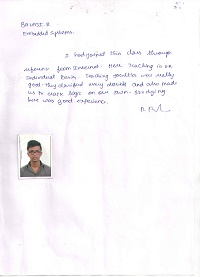 BALAJI.R.
Embedded Systems.
I had joined this class through
reference from Internet. Here Teaching is on
Individual Basis. Teaching faculties was really
good. They clarified every doubts and also made
us to crack logic on our own. Studying
here was good experience.